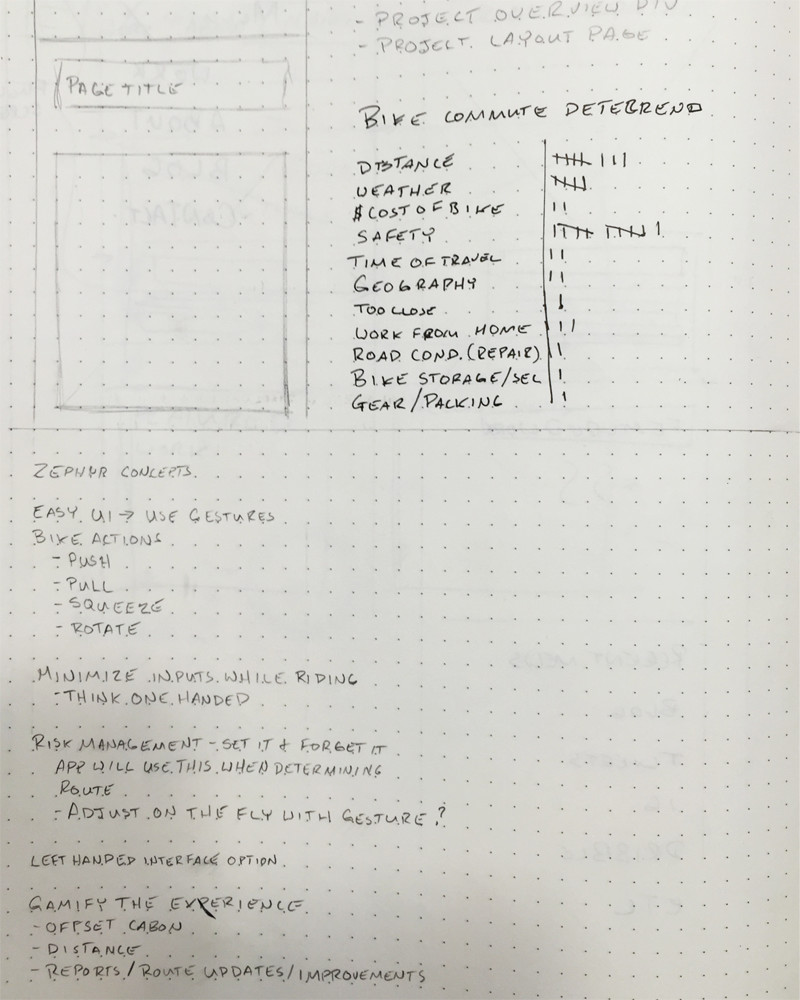 - PROJECT OVERVIEW DIV
- PROJECT LAYOUT PAGE
PAGE TITLE
BIKE COMMUTE DETERREND
DISTANCE
WEATHER
$ COST OF BIKE
SAFETY
TIME OF TRAVEL
GEOGRAPHY
TOO CLOSE
WORK FROM HOME
ROAD COND. (REPAIR)
BIKE STORAGE/SEC
GEAR/PACKING
ZEPHYR CONCEPTS
EASY UI → USE GESTURES
BIKE ACTIONS
- PUSH
- PULL
- SQUEEZE
- ROTATE
MINIMIZE INPUTS WHILE RIDING
- THINK ONE HANDED
RISK MANAGEMENT - SET IT & FORGET IT
APP WILL USE THIS WHEN DETERMINING
ROUTE
- ADJUST ON THE FLY WITH GESTURE?
LEFT HANDED INTERFACE OPTION
GAMIFY THE EXPERIENCE
- OFFSET CABON
- DISTANCE
- REPORTS/ROUTE UPDATES/IMPROVEMENTS